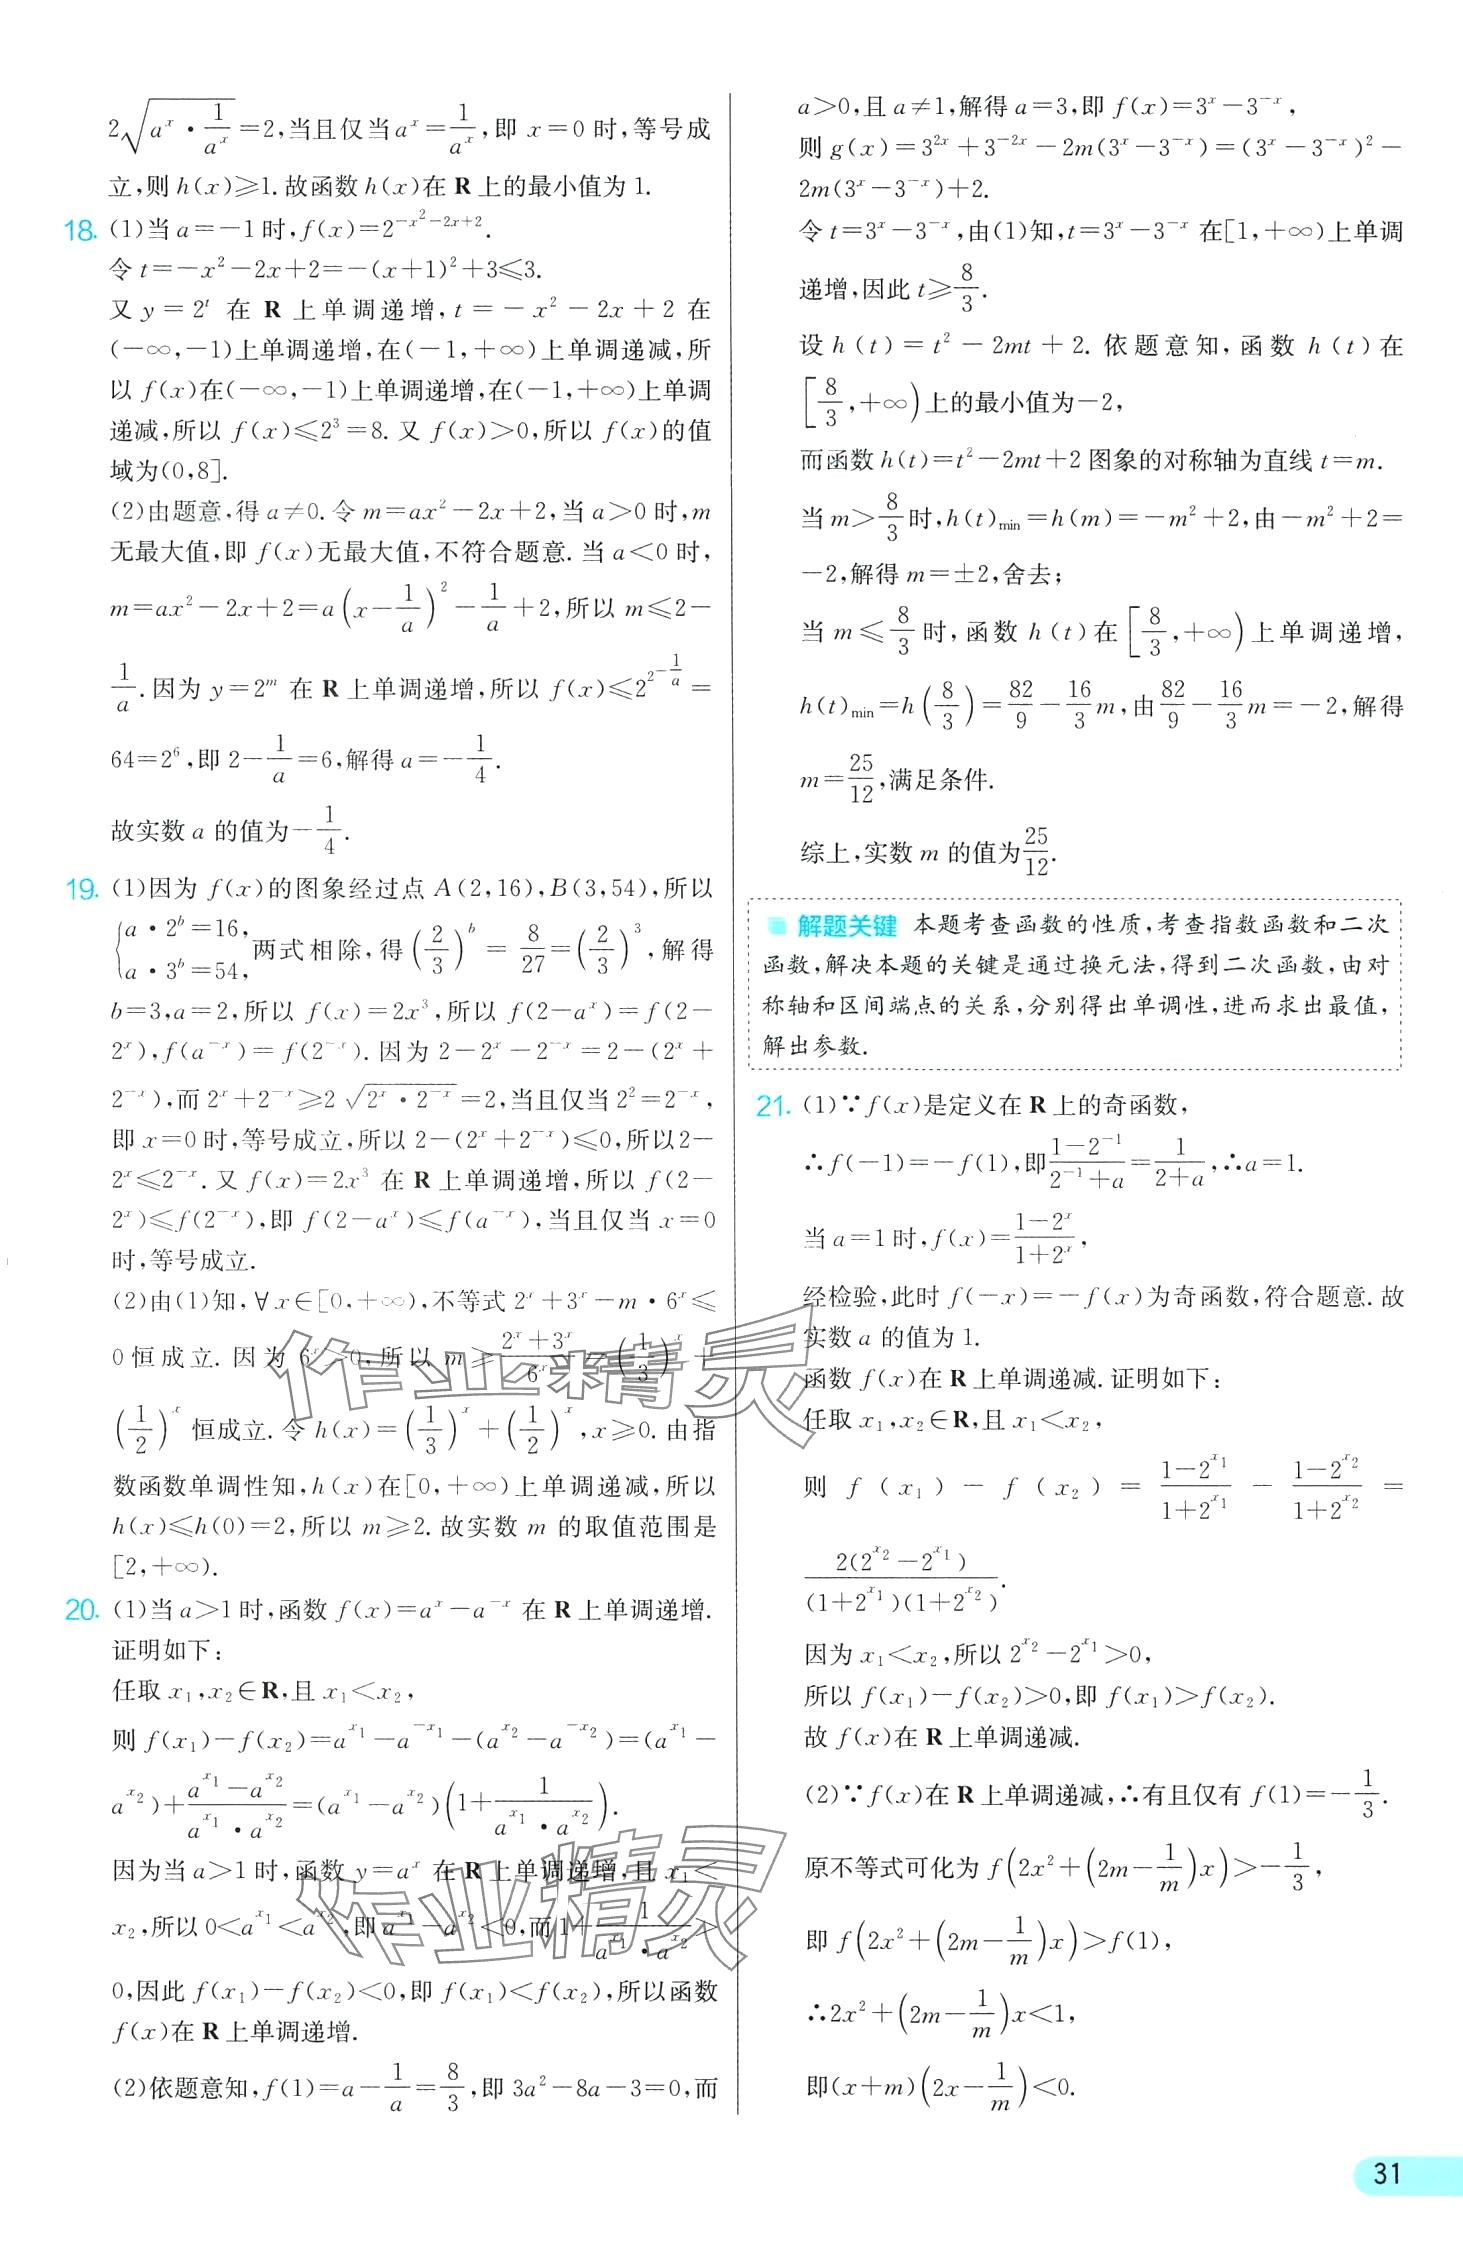 2√(a^x·1/a^x)=2,当且仅当a^x=1/a^x,即 x=0 时,等号成
立,则 h(x)⩾1. 故函数 h(x)在 R 上的最小值为 1.
18. (1)当 a=-1 时,f(x)=2^(-x²-2x+2).
令 t=-x²-2x+2=-(x+1)²+3⩽3.
又 y=2^t 在 R 上单调递增,t=-x²-2x+2 在
(-∞,-1)上单调递增,在(-1,+∞)上单调递减,所
以 f(x)在(-∞,-1)上单调递增,在(-1,+∞)上单调
递减,所以 f(x)⩽2³=8. 又 f(x)>0,所以 f(x)的值
域为(0,8].
(2)由题意,得 a≠0. 令 m=ax²-2x+2,当 a>0 时,m
无最大值,即 f(x)无最大值,不符合题意. 当 a<0 时,
m=ax²-2x+2=a(x-1/a)²-1/a+2,所以 m⩽2-
1/a. 因为 y=2^m 在 R 上单调递增,所以 f(x)⩽2^(2-1/a)=
64=2⁶,即 2-1/a=6,解得 a=-1/4.
故实数 a 的值为-1/4.
19. (1)因为 f(x)的图象经过点 A(2,16),B(3,54),所以
{a·2^b=16, a·3^b=54, 两式相除,得(2/3)^b=8/27=(2/3)³,解得
b=3,a=2,所以 f(x)=2x³,所以 f(2-a^x)=f(2-
2^x),f(a^(-x))=f(2^(-x)). 因为 2-2^x-2^(-x)=2-(2^x+
2^(-x)),而 2^x+2^(-x)⩾2√(2^x·2^(-x))=2,当且仅当 2²=2^(-x),
即 x=0 时,等号成立,所以 2-(2^x+2^(-x))⩽0,所以 2-
2^x⩽2^(-x). 又 f(x)=2x³ 在 R 上单调递增,所以 f(2-
2^x)⩽f(2^(-x)),即 f(2-a^x)⩽f(a^(-x)),当且仅当 x=0
时,等号成立.
(2)由(1)知,∀x∈[0,+∞),不等式 2^x+3^x-m·6^x⩽
0 恒成立. 因为 6^x>0,所以 m⩾(2^x+3^x)/6^x=(1/3)^x+
(1/2)^x 恒成立. 令 h(x)=(1/3)^x+(1/2)^x,x⩾0. 由指
数函数单调性知,h(x)在[0,+∞)上单调递减,所以
h(x)⩽h(0)=2,所以 m⩾2. 故实数 m 的取值范围是
[2,+∞).
20. (1)当 a>1 时,函数 f(x)=a^x-a^(-x) 在 R 上单调递增.
证明如下:
任取 x₁,x₂∈R,且 x₁<x₂,
则 f(x₁)-f(x₂)=a^x₁-a^(-x₁)-(a^x₂-a^(-x₂))=(a^x₁-
a^x₂)+(a^x₁-a^x₂)/(a^x₁·a^x₂)=(a^x₁-a^x₂)(1+1/(a^x₁·a^x₂)).
因为当 a>1 时,函数 y=a^x 在 R 上单调递增,且 x₁<
x₂,所以 0<a^x₁<a^x₂,即 a^x₁-a^x₂<0,而 1+1/(a^x₁·a^x₂)>
0,因此 f(x₁)-f(x₂)<0,即 f(x₁)<f(x₂),所以函数
f(x)在 R 上单调递增.
(2)依题意知,f(1)=a-1/a=8/3,即 3a²-8a-3=0,而
a>0,且 a≠1,解得 a=3,即 f(x)=3^x-3^(-x),
则 g(x)=3^(2x)+3^(-2x)-2m(3^x-3^(-x))=(3^x-3^(-x))²-
2m(3^x-3^(-x))+2.
令 t=3^x-3^(-x),由(1)知,t=3^x-3^(-x) 在[1,+∞)上单调
递增,因此 t⩾8/3.
设 h(t)=t²-2mt+2. 依题意知,函数 h(t)在
[8/3,+∞)上的最小值为-2,
而函数 h(t)=t²-2mt+2 图象的对称轴为直线 t=m.
当 m>8/3时,h(t)min=h(m)=-m²+2,由-m²+2=
-2,解得 m=±2,舍去;
当 m⩽8/3时,函数 h(t)在[8/3,+∞)上单调递增,
h(t)min=h(8/3)=82/9-16/3m,由82/9-16/3m=-2,解得
m=25/12,满足条件.
综上,实数 m 的值为25/12.
解题关键 本题考查函数的性质,考查指数函数和二次
函数,解决本题的关键是通过换元法,得到二次函数,由对
称轴和区间端点的关系,分别得出单调性,进而求出最值,
解出参数.
21. (1)∵f(x)是定义在 R 上的奇函数,
∴f(-1)=-f(1),即(1-2^(-1))/(2^(-1)+a)=1/(2+a),∴a=1.
当 a=1 时,f(x)=(1-2^x)/(1+2^x),
经检验,此时 f(-x)=-f(x)为奇函数,符合题意. 故
实数 a 的值为 1.
函数 f(x)在 R 上单调递减. 证明如下:
任取 x₁,x₂∈R,且 x₁<x₂,
则 f(x₁)-f(x₂)=(1-2^x₁)/(1+2^x₁)-(1-2^x₂)/(1+2^x₂)=
2(2^x₂-2^x₁)/((1+2^x₁)(1+2^x₂)).
因为 x₁<x₂,所以 2^x₂-2^x₁>0,
所以 f(x₁)-f(x₂)>0,即 f(x₁)>f(x₂).
故 f(x)在 R 上单调递减.
(2)∵f(x)在 R 上单调递减,∴有且仅有 f(1)=-1/3.
原不等式可化为 f(2x²+(2m-1/m)x)>-1/3,
即 f(2x²+(2m-1/m)x)>f(1),
∴2x²+(2m-1/m)x<1,
即(x+m)(2x-1/m)<0.
作业精灵
作业精灵
31